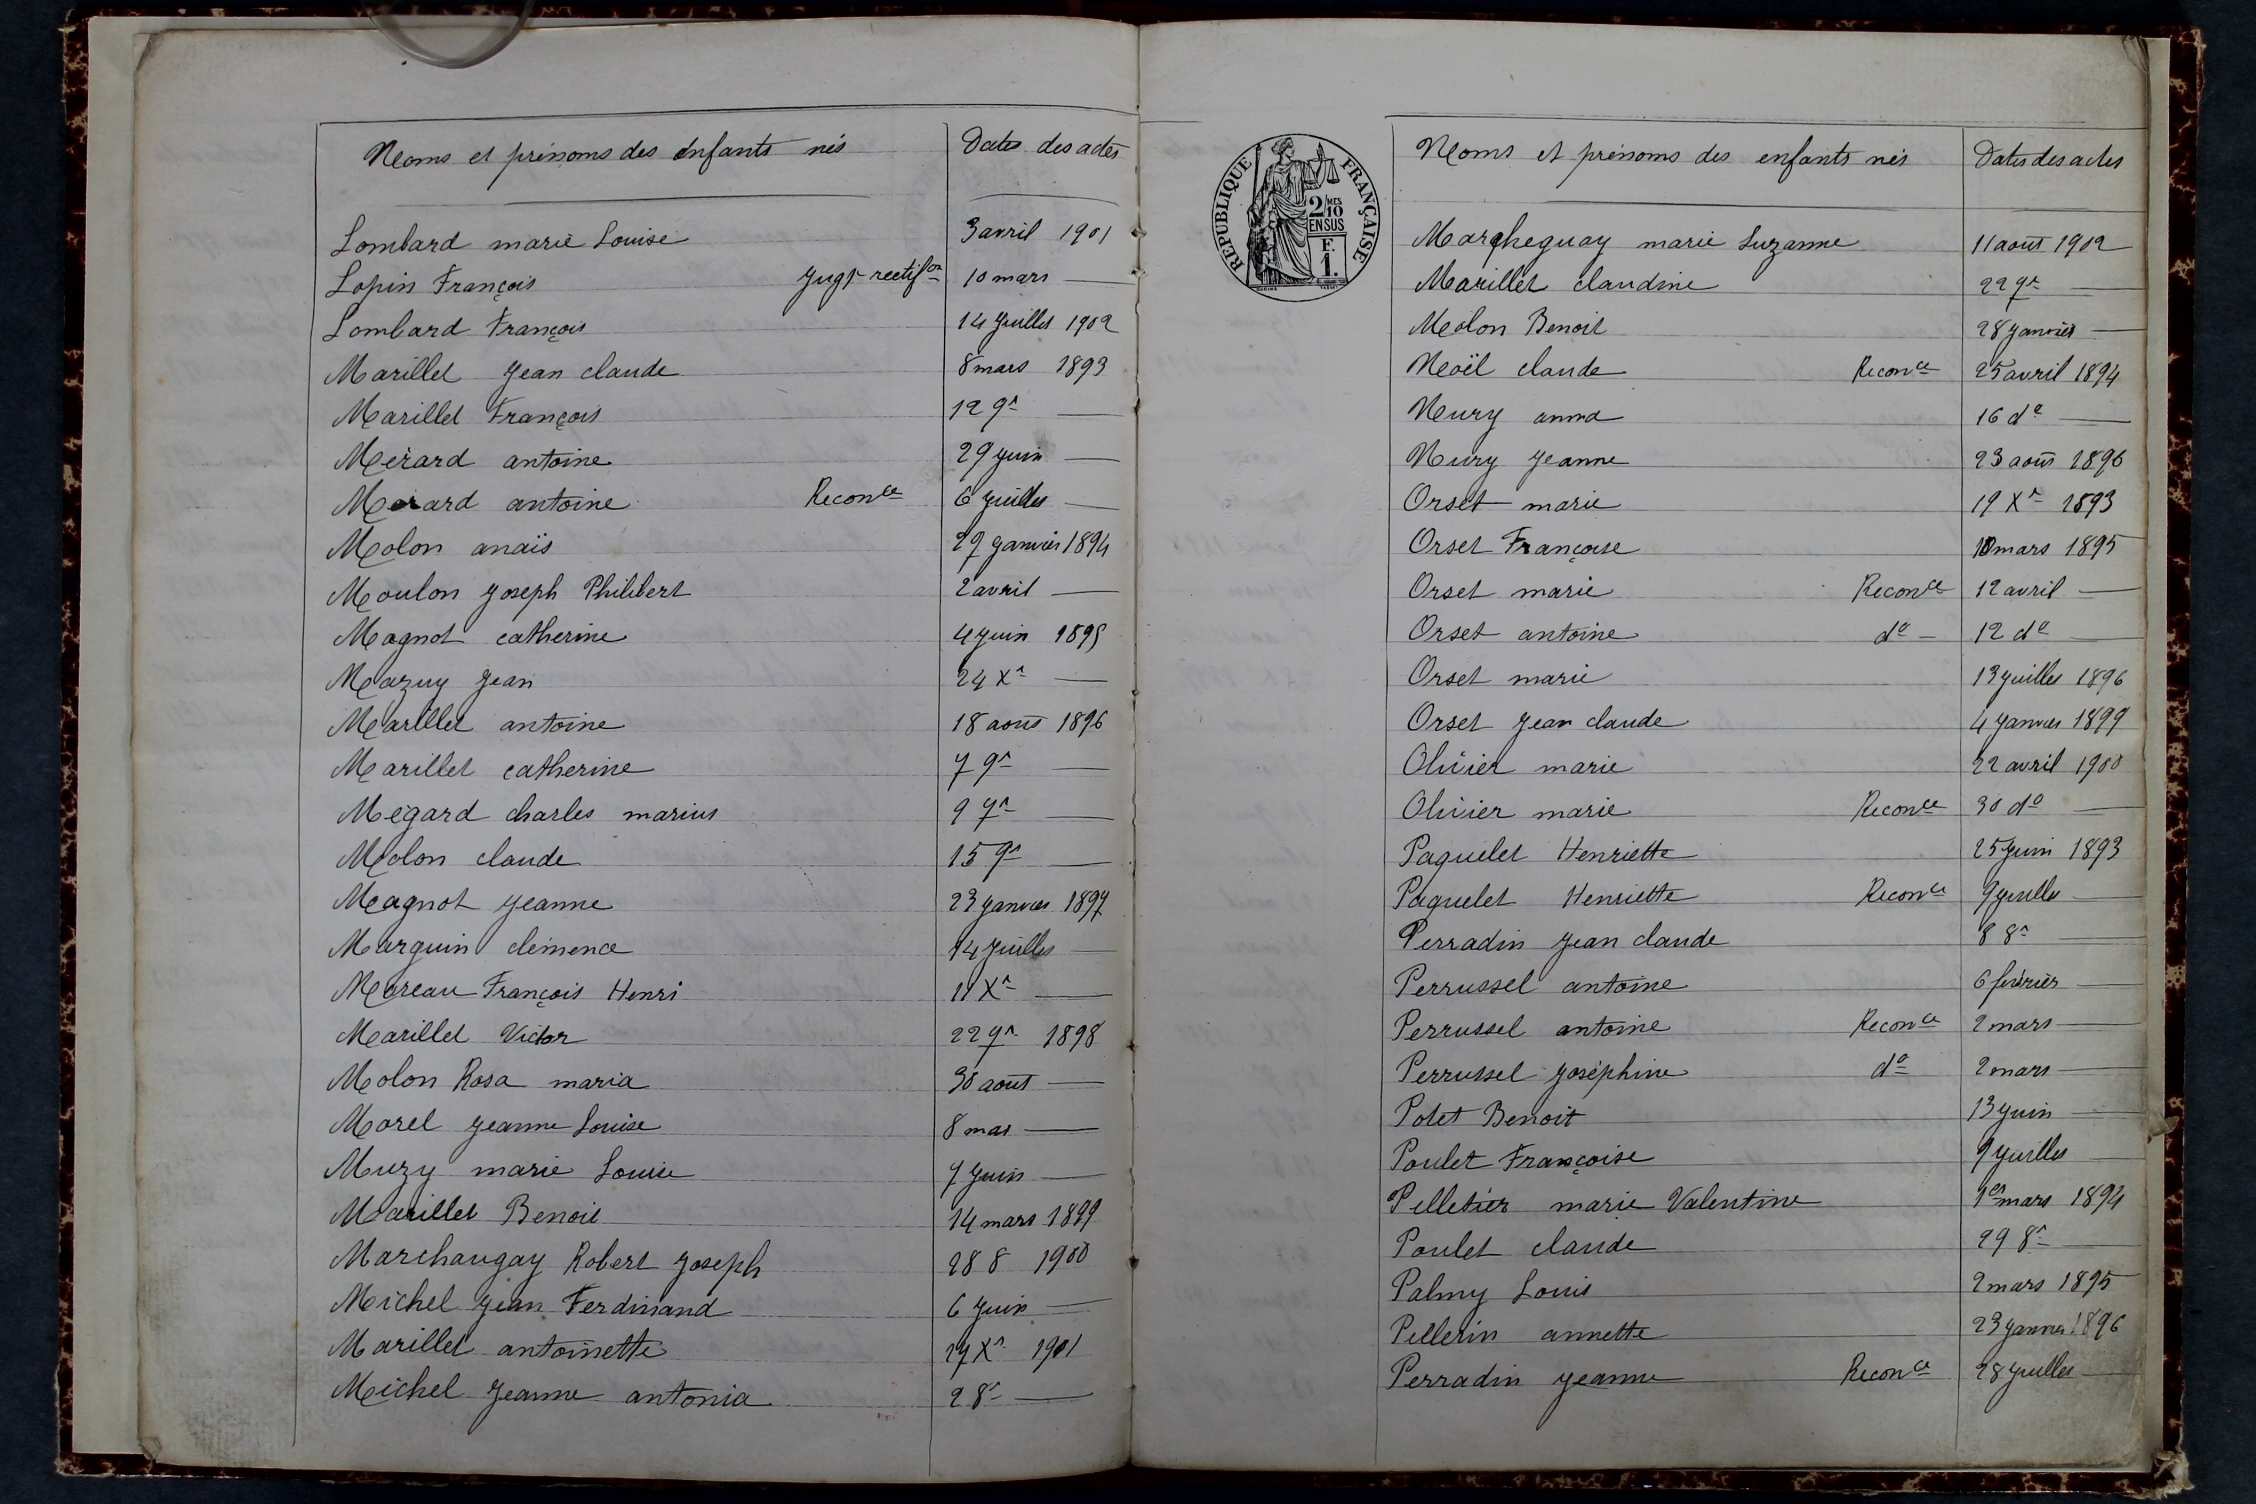 Noms et prénoms des enfants nés Dates des actes
Lombard marie Louise 3 avril 1901
Lopin François Jugt rectifon 10 mars —
Lombard François 14 juillet 1902
Marillet Jean claude 8 mars 1893
Marillet François 12 9r —
Mérard antoine 29 juin —
Morard antoine Reconce 6 juillet —
Molon anaïs 27 janvier 1894
Moulon Joseph Philibert 2 avril —
Magnot catherine 4 juin 1895
Mazuy Jean 24 Xr —
Marillet antoine 18 aout 1896
Marillet catherine 7 9r —
Mégard charles marius 9 7r —
Molon claude 15 9r —
Magnot Jeanne 23 janvier 1897
Marguin clémence 14 juillet —
Moreau François Henri 11 Xr —
Marillet Victor 22 9r 1898
Molon Rosa maria 30 août —
Morel Jeanne Louise 8 mai —
Muzy marie Louise 7 juin —
Marillet Benoit 14 mars 1899
Marchaugay Robert Joseph 28 8 1900
Michel Jean Ferdinand 6 juin —
Marillet antoinette 27 Xr 1901
Michel Jeanne antonia 2 8r —
REPUBLIQUE FRANÇAISE
2/10 MES
EN SUS
F.
1.
Noms et prénoms des enfants nés Dates des actes
Marcheguay marie Suzanne 11 août 1902
Marillet claudine 22 7r —
Molon Benoit 28 janvier —
Noël claude Reconce 25 avril 1894
Nury anna 16 do —
Nury Jeanne 23 août 1896
Orset marie 19 Xr 1893
Orset Françoise 10 mars 1895
Orset marie Reconce 12 avril —
Orset antoine do — 12 do —
Orset marie 13 juillet 1896
Orset Jean claude 4 janvier 1899
Olivier marie 22 avril 1900
Olivier marie Reconce 30 do —
Paquelet Henriette 25 juin 1893
Paquelet Henriette Reconce 9 juillet —
Perradin Jean claude 8 8r —
Perrussel antoine 6 février —
Perrussel antoine Reconce 2 mars —
Perrussel Joséphine do 2 mars —
Potet Benoit 13 juin —
Poulet Françoise 9 juillet —
Pelletier marie Valentine 1er mars 1894
Poulet claude 29 8r —
Palmy Louis 2 mars 1895
Pellerin annette 23 janvier 1896
Perradin Jeanne Reconce 28 juillet —